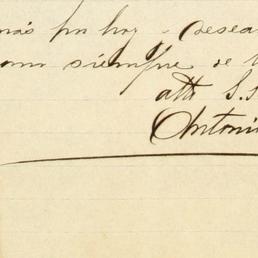 más por hoy - desea
como siempre de
att S.S
Antoni